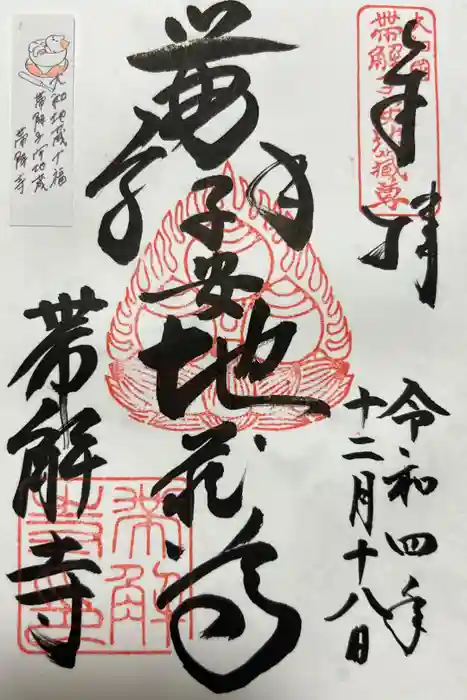 奉拝
令和四年
十二月十八日
子安地蔵尊
帶解寺
大和国
帶解子安地藏尊
大和地蔵十福
帯解子安地蔵
帯解寺